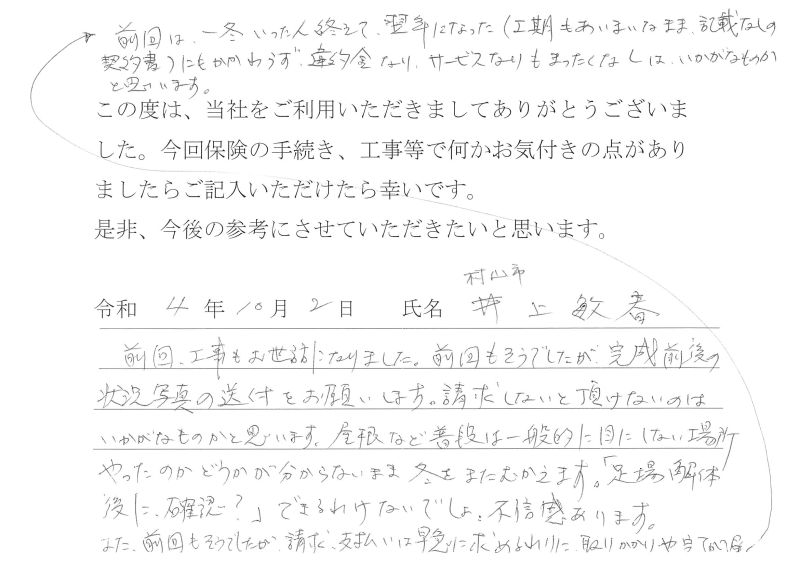 前回は、一冬いったん終えて、翌年になった(工期もあいまいなまま、記載なしの
契約書)にもかかわらず、違約金なり、サービスなりもまったくなしは、いかがなものか
と思います。
この度は、当社をご利用いただきましてありがとうございま
した。今回保険の手続き、工事等で何かお気付きの点があり
ましたらご記入いただけたら幸いです。
是非、今後の参考にさせていただきたいと思います。
村山市
令和 4 年 10 月 2 日 氏名 井上敏春
前回、工事もお世話になりました。前回もそうでしたが、完成前後の
状況写真の送付をお願いします。請求しないと頂けないのは
いかがなものかと思います。屋根など普段は一般的に目にしない場所
やったのかどうかが分からないまま冬をまたむかえます。「足場解体
後に、確認?」できるわけないでしょ。不信感あります。
また、前回もそうでしたが、請求、支払いは早急に求めるわりに、取りかかりや